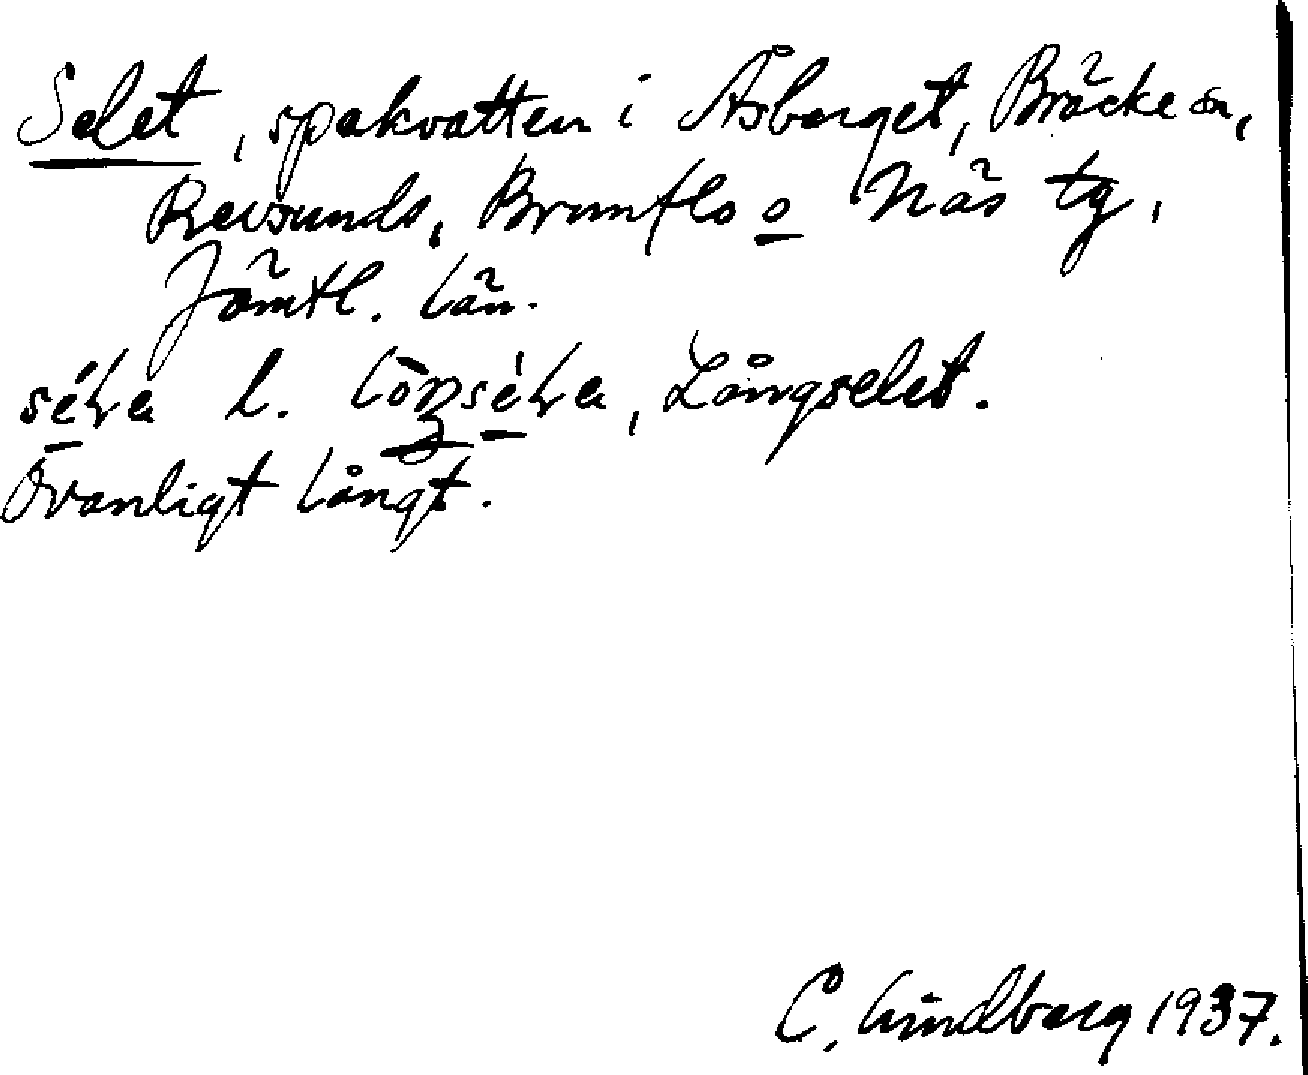 Selet, spakvatten i Åsberget, Bräcke sn,
Revsunds, Brunflo o Näs tg,
Jämtl. län.
l. Långselet.
Ovanligt långt.
C. Lindberg 1937.